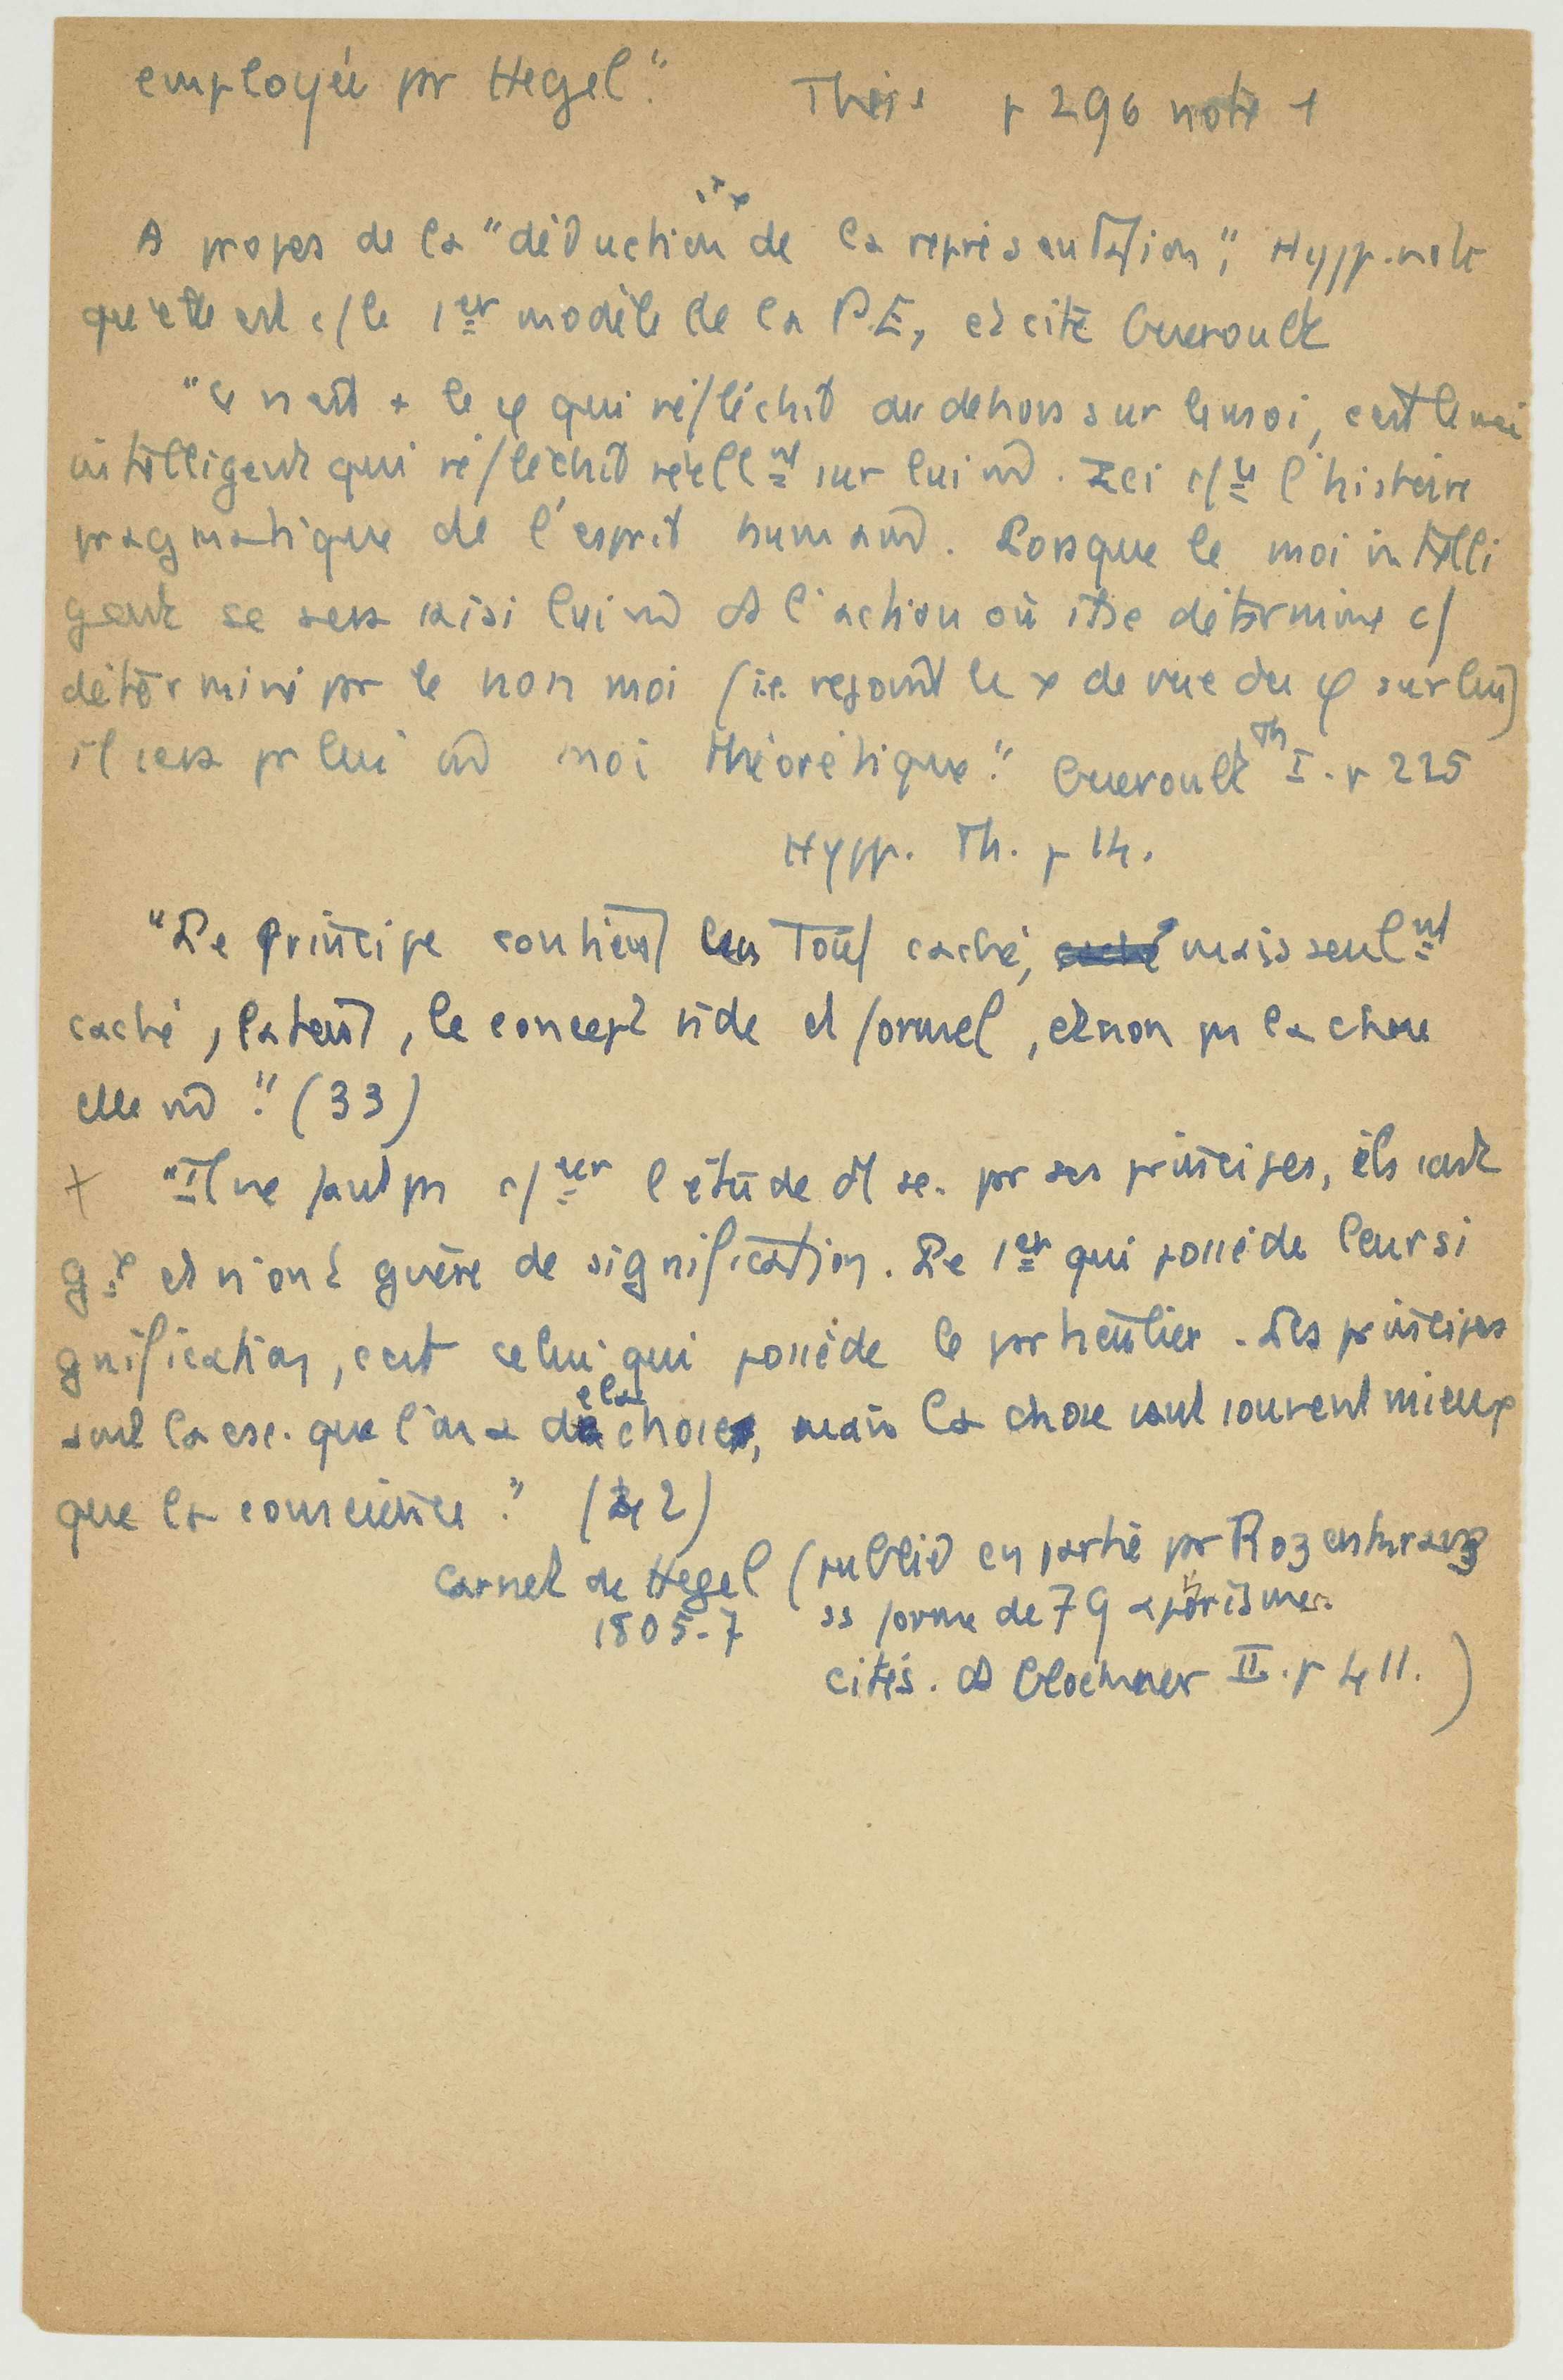 employée pr Hegel." Thèse p 296 note 1
A propos de la "déduction de la représentation", Hypp. note
qu'elle est c/ le 1er modèle de la PE, et cite Gueroult
"Ce n'est + le φ qui réfléchit du dehors sur le moi, c'est le moi
intelligent qui réfléchit réellnt sur lui m̂. Ici c/ce l'histoire
pragmatique de l'esprit humain. Lorsque le moi intelli
gent se sera saisi lui m̂ ds l'action où il se détermine c/
déterminé pr le non moi (i.e. rejoint le x de vue du φ sur lui)
il sera pr lui m̂ moi théorétique." Gueroult Th I. p 225
Hypp. Th. p 14.
"Le principe contient un Tout caché, mais seulnt
caché, latent, le concept vide et formel, et non ps la chose
elle m̂." (33)
+ "Il ne faut ps c/cer l'étude d'1 sc. pr ses principes, ils sont
gx et n'ont guère de signification. Le 1er qui possède leur si
gnification, c'est celui qui possède le particulier. Les principes
sont la csc. que l'on a de la chose, mais la chose vaut souvent mieux
que la conscience." (42)
Carnet de Hegel (publié en partie pr Rozenkranz
1805-7 ss forme de 79 aphorismes
cités. ds Glockner II. p 411.)